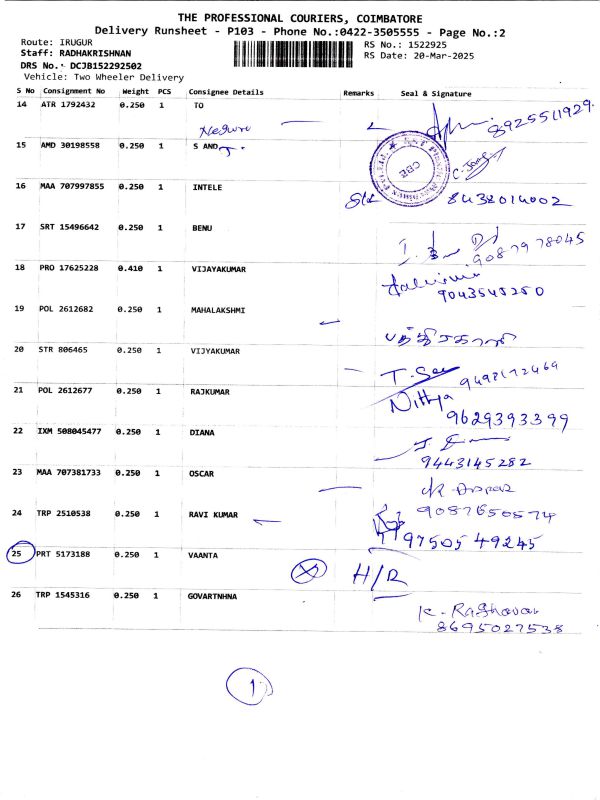 THE PROFESSIONAL COURIERS, COIMBATORE
Delivery Runsheet - P103 - Phone No.:0422-3505555 - Page No.:2
Route: IRUGUR RS No.: 1522925
Staff: RADHAKRISHNAN RS Date: 20-Mar-2025
DRS No.: DCJB152292502
Vehicle: Two Wheeler Delivery
S No Consignment No Weight PCS Consignee Details Remarks Seal & Signature
14 ATR 1792432 0.250 1 TO
8925511929
15 AMD 30198558 0.250 1 S AND
CBE
16 MAA 707997855 0.250 1 INTELE
8438014002
17 SRT 15496642 0.250 1 BENU
9087978045
18 PRO 17625228 0.410 1 VIJAYAKUMAR
9043545250
19 POL 2612682 0.250 1 MAHALAKSHMI
20 STR 806465 0.250 1 VIJYAKUMAR
21 POL 2612677 0.250 1 RAJKUMAR
Nithya
9629393399
22 IXM 508045477 0.250 1 DIANA
9443145282
23 MAA 707381733 0.250 1 OSCAR
24 TRP 2510538 0.250 1 RAVI KUMAR
9087650574
9750549245
25 PRT 5173188 0.250 1 VAANTA
H/R
26 TRP 1545316 0.250 1 GOVARTNHNA
K. Raghavan
8695027538
1